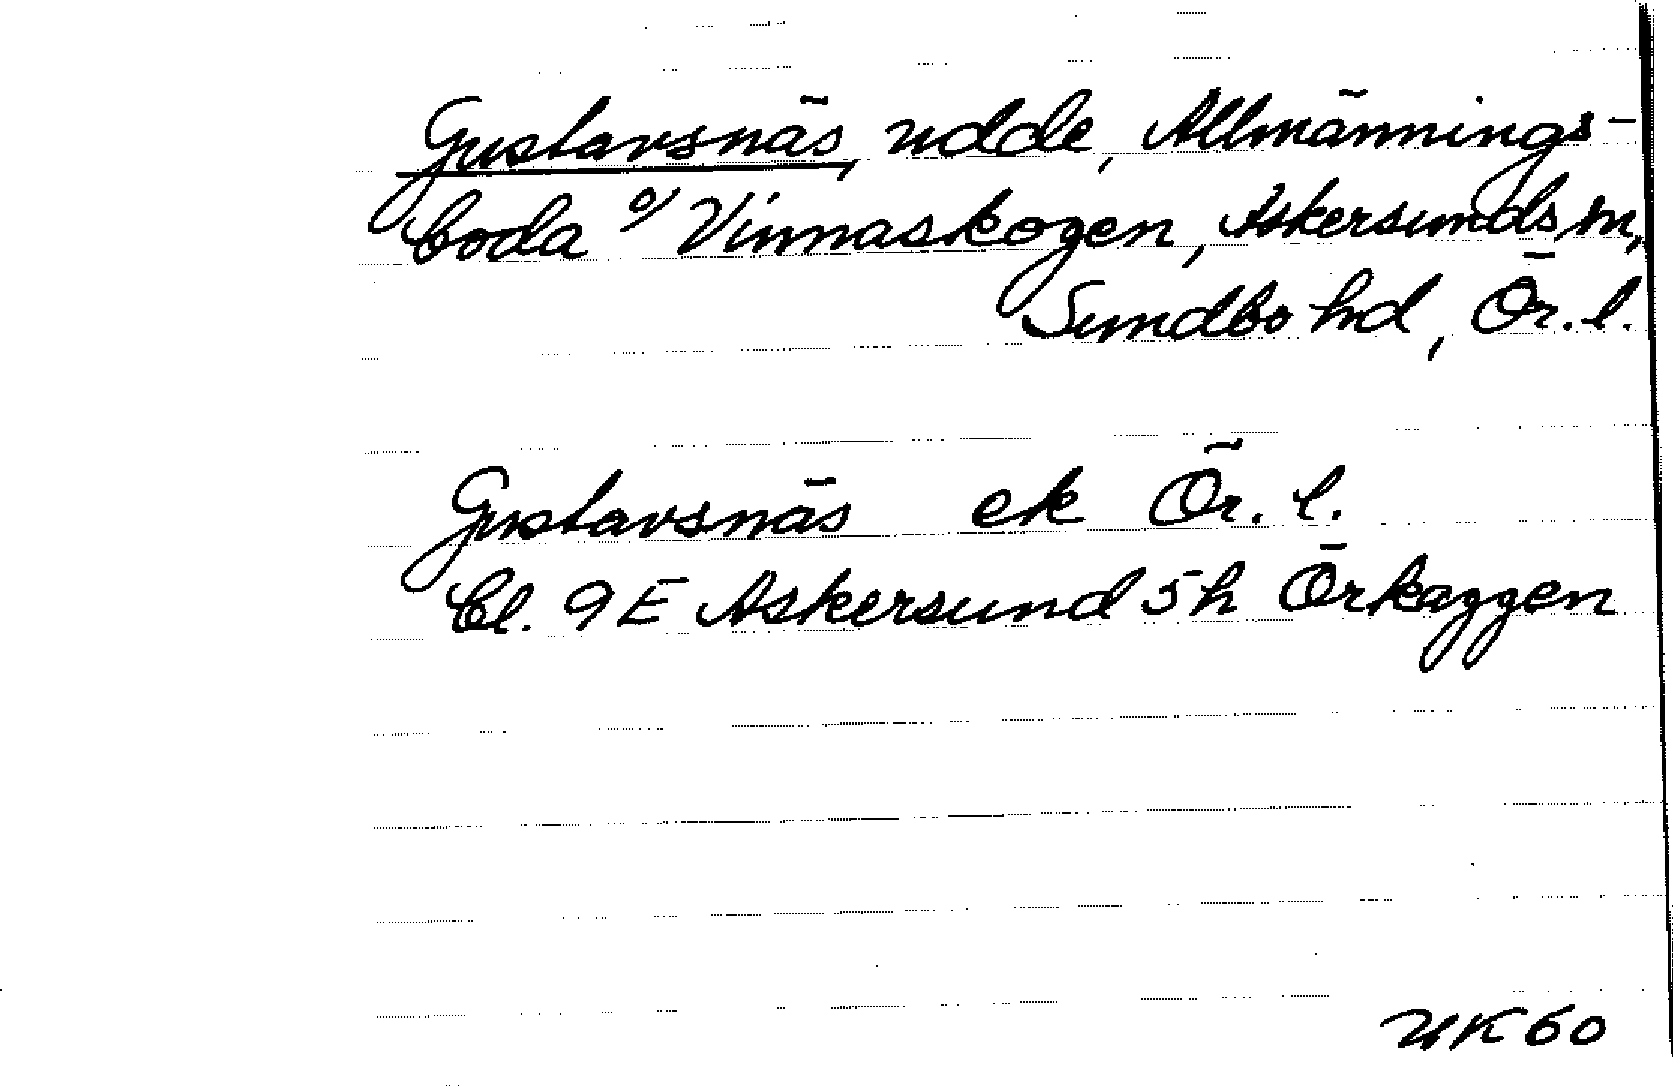 Gustavsnäs, udde, Allmännings-
boda o/ Vinnaskogen, Askersunds sn,
Sundbo hd, Ör. l.
Gustavsnäs ek Ör. l.
Bl. 9E Askersund 5h Örkaggen
UK60